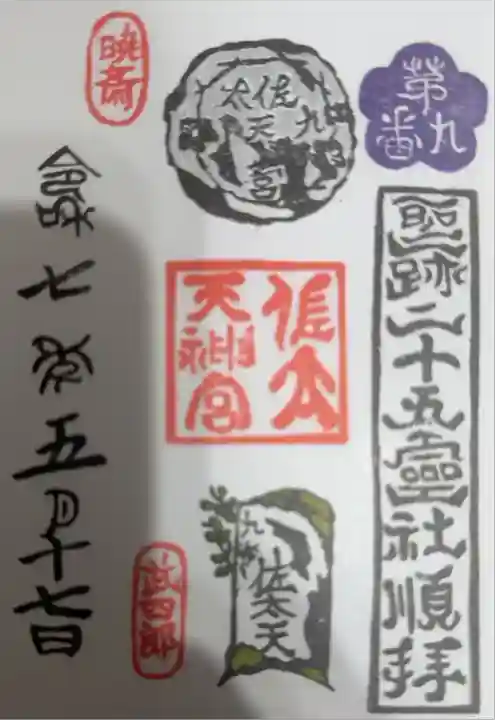 第九番
聖跡二十五霊社順拝
佐太天宮
九
佐太
天神宮
九番
佐太天
暁斎
令和七年五月十七日